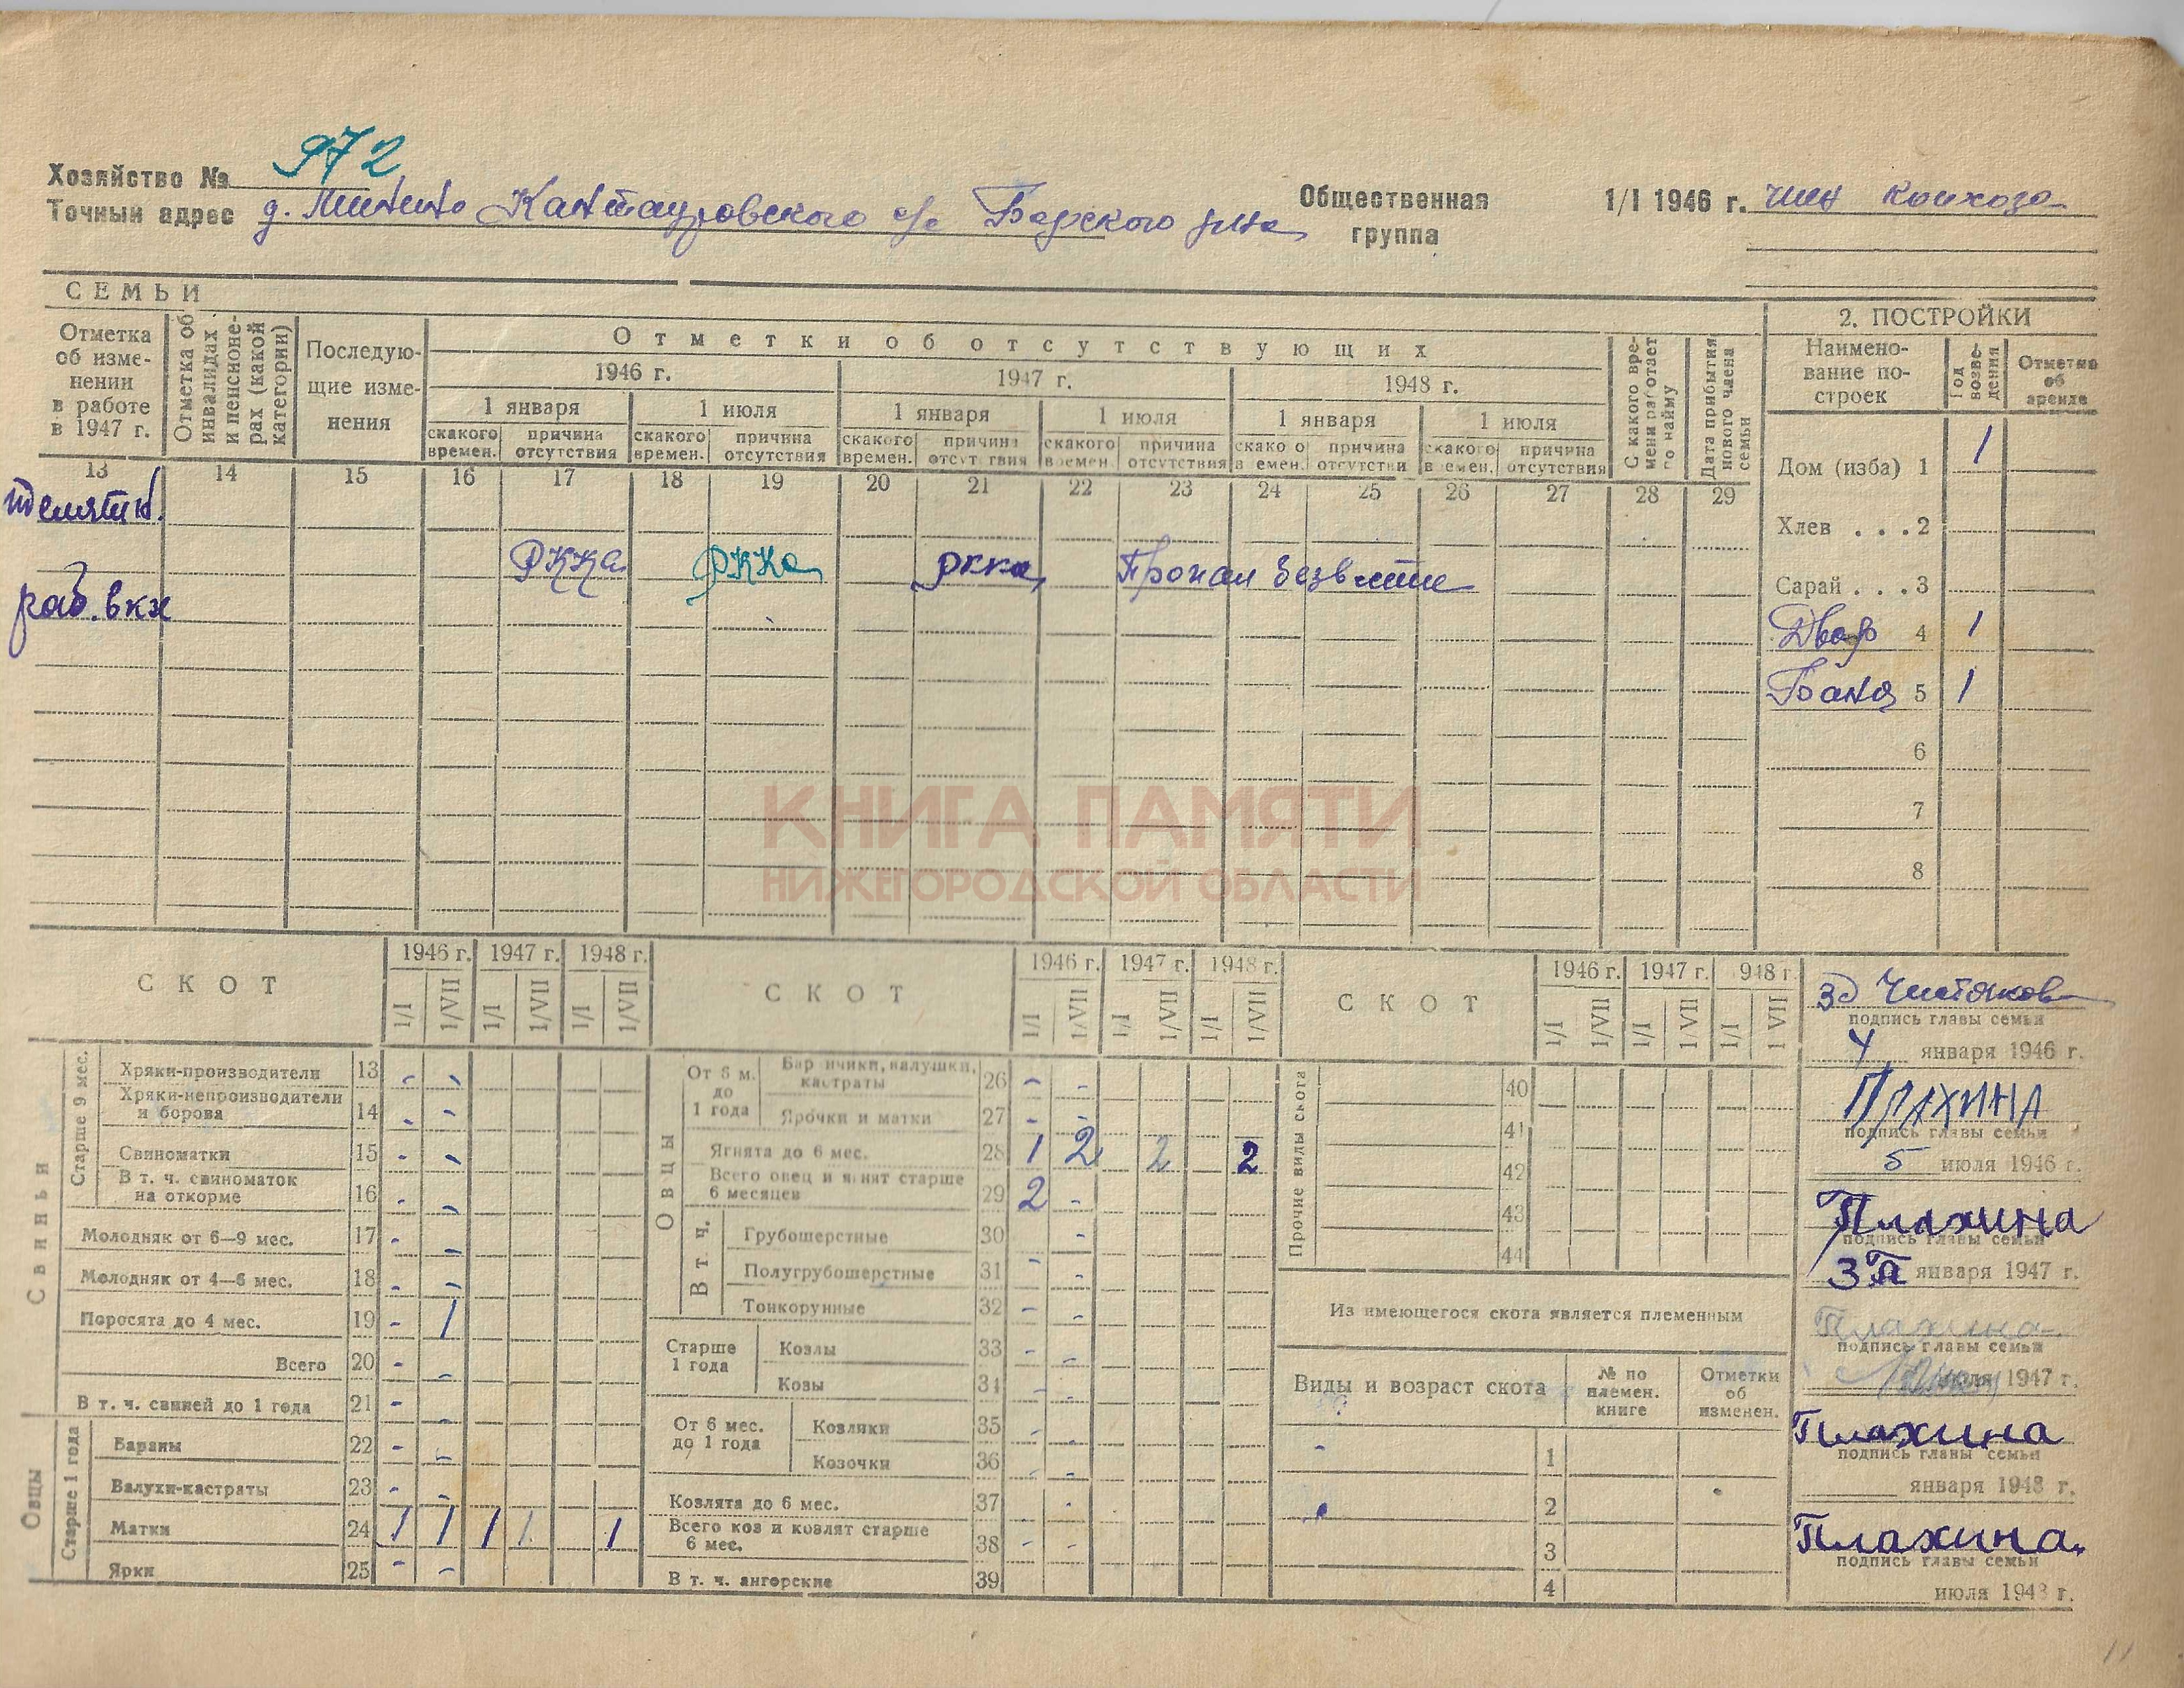 Хозяйство № 972
Точный адрес д. Минино Кантауровского с/с Борского р-на
Общественная группа 1/I 1946 г. член колхоза
СЕМЬИ
Отметка об изменении в работе в 1947 г.
Отметка об инвалидах и пенсионерах (какой категории)
Последующие изменения
Отметки об отсутствующих
1946 г. 1947 г. 1948 г.
1 января 1 июля 1 января 1 июля 1 января 1 июля
скакого времен. причина отсутствия скакого времен. причина отсутствия скакого времен. причина отсутствия скакого времен. причина отсутствия скако о в емен. отсутстви причина скакого в емен. причина отсутствия
С какого времени работает по найму
Дата прибытия нового члена семьи
13 14 15 16 17 18 19 20 21 22 23 24 25 26 27 28 29
телятн.
РККА РККА РККА Пропал безвести
раб. в кх
2. ПОСТРОЙКИ
Наименование построек
Год возведения
Отметка об аренде
Дом (изба) 1 1
Хлев . . . 2
Сарай . . . 3
Двор 4 1
Баня 5 1
6
7
8
КНИГА ПАМЯТИ
НИЖЕГОРОДСКОЙ ОБЛАСТИ
СКОТ 1946 г. 1947 г. 1948 г.
1/I 1/VII 1/I 1/VII 1/I 1/VII
Свиньи
Старше 9 мес.
Хряки-производители 13 - -
Хряки-непроизводители и борова 14 - -
Свиноматки 15 - -
В т. ч. свиноматок на откорме 16 - -
Молодняк от 6—9 мес. 17 - -
Молодняк от 4—6 мес. 18 - -
Поросята до 4 мес. 19 - 1
Всего 20 - -
В т. ч. свиней до 1 года 21 - -
Овцы
Старше 1 года
Бараны 22 - -
Валухи-кастраты 23 - -
Матки 24 1 1 1 1 1
Ярки 25 - -
СКОТ 1946 г. 1947 г. 1948 г.
1/I 1/VII 1/I 1/VII 1/I 1/VII
Овцы
От 6 м. до 1 года
Бар нчики, валушки, кастраты 26 - -
Ярочки и матки 27 - -
Ягнята до 6 мес. 28 1 2 2 2
Всего овец и ягнят старше 6 месяцев 29 2 -
В т. ч.
Грубошерстные 30 -
Полугрубошерстные 31 - -
Тонкорунные 32 - -
Старше 1 года
Козлы 33 - -
Козы 34 - -
От 6 мес. до 1 года
Козлики 35 - -
Козочки 36 - -
Козлята до 6 мес. 37 -
Всего коз и козлят старше 6 мес. 38 - -
В т. ч. ангорские 39
СКОТ 1946 г. 1947 г. 948 г
1/I 1/VII 1/I 1 VII 1/I 1 VII
Прочие виды скота
40
41
42
43
44
Из имеющегося скота является племенным
Виды и возраст скота
№ по племен. книге
Отметки об изменен.
1
2
3
4
подпись главы семьи
4 января 1946 г.
ПЛАХИНА
подпись главы семьи
5 июля 1946 г.
Плахина
подпись главы семьи
3 января 1947 г.
Плахина
подпись главы семьи
июля 1947 г.
Плахина
подпись главы семьи
января 1948 г.
Плахина
подпись главы семьи
июля 1948 г.
11